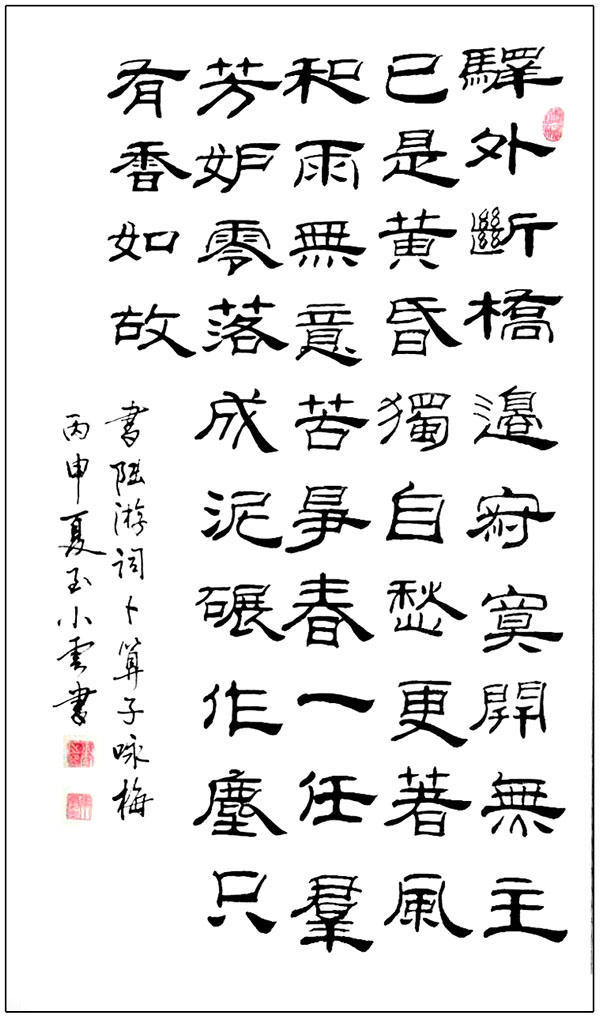 驛外斷橋邊寂寞開無主
已是黄昏獨自愁更著風
和雨無意苦爭春一任羣
芳妒零落成泥碾作塵只
有香如故
書陸游詞卜算子咏梅
丙申夏小雲書